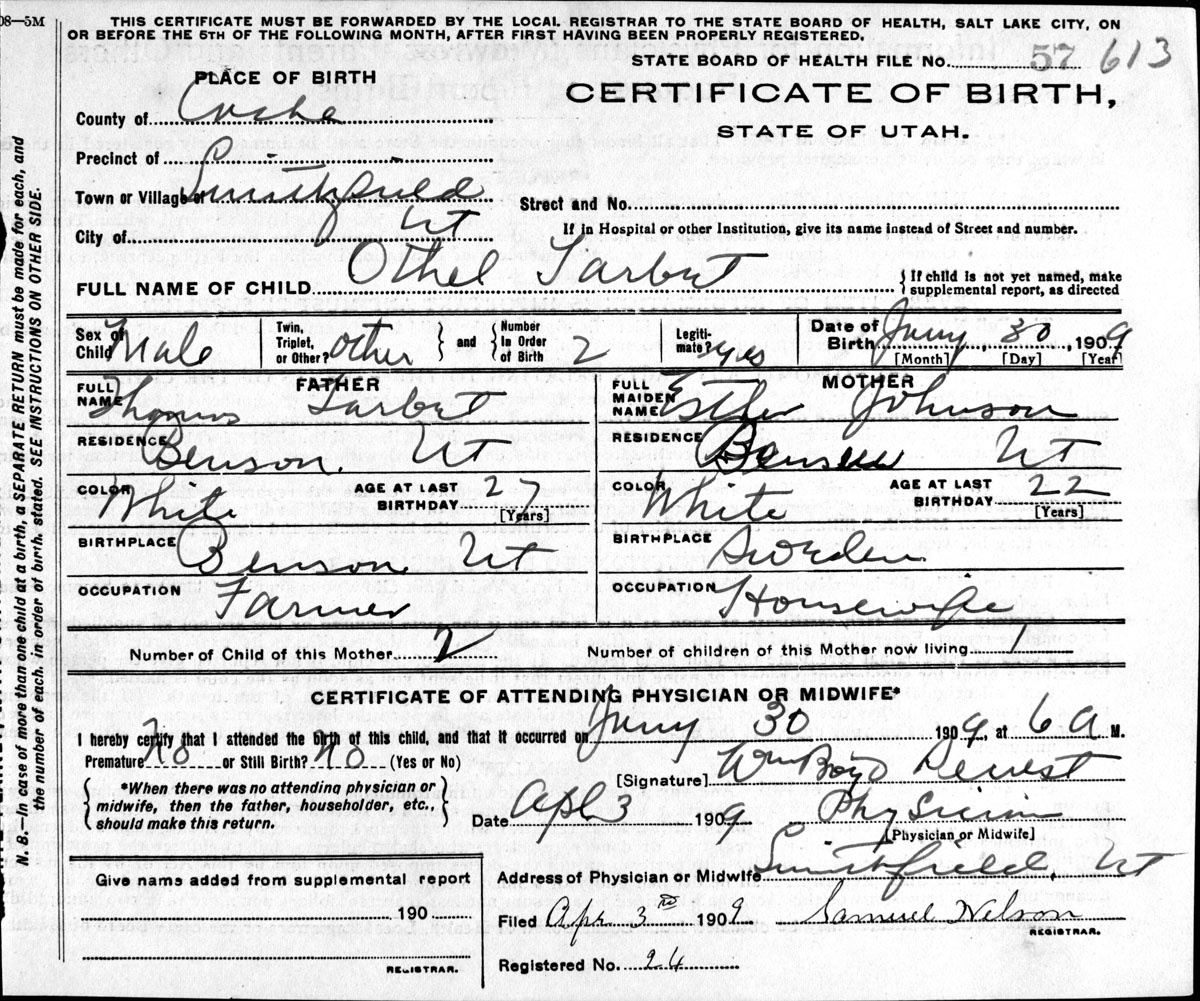 08—5M
THIS CERTIFICATE MUST BE FORWARDED BY THE LOCAL REGISTRAR TO THE STATE BOARD OF HEALTH, SALT LAKE CITY, ON
OR BEFORE THE 5TH OF THE FOLLOWING MONTH, AFTER FIRST HAVING BEEN PROPERLY REGISTERED.
STATE BOARD OF HEALTH FILE No. 57 613
PLACE OF BIRTH
CERTIFICATE OF BIRTH,
STATE OF UTAH.
County of Cache
Precinct of
Town or Village of Smithfield
Street and No.
City of Ut
If in Hospital or other Institution, give its name instead of Street and number.
FULL NAME OF CHILD Othel Tarbet
{ If child is not yet named, make supplemental report, as directed
Sex of Child Male
Twin, Triplet, or Other? other } and { Number In Order of Birth 2
Legiti- mate? yes
Date of Birth Jany 30, 1909
[Month] [Day] [Year]
FATHER
FULL NAME Thomas Tarbet
RESIDENCE Benson Ut
COLOR White AGE AT LAST BIRTHDAY 27 [Years]
BIRTHPLACE Benson Ut
OCCUPATION Farmer
MOTHER
FULL MAIDEN NAME Esther Johnson
RESIDENCE Benson Ut
COLOR White AGE AT LAST BIRTHDAY 22 [Years]
BIRTHPLACE Sweden
OCCUPATION Housewife
Number of Child of this Mother 2 Number of children of this Mother now living 1
CERTIFICATE OF ATTENDING PHYSICIAN OR MIDWIFE*
I hereby certify that I attended the birth of this child, and that it occurred on Jany 30 1909, at 6 A M.
Premature No or Still Birth? No (Yes or No)
[Signature] Wm Boyd
*When there was no attending physician or
midwife, then the father, householder, etc.,
should make this return.
Date Apl 3 1909 Physician
[Physician or Midwife]
Address of Physician or Midwife Smithfield, Ut
Give name added from supplemental report
190
REGISTRAR.
Filed Apr 3rd 1909 Samuel Nelson
REGISTRAR.
Registered No. 24
N. B.—In case of more than one child at a birth, a SEPARATE RETURN must be made for each, and
the number of each, in order of birth, stated. SEE INSTRUCTIONS ON OTHER SIDE.